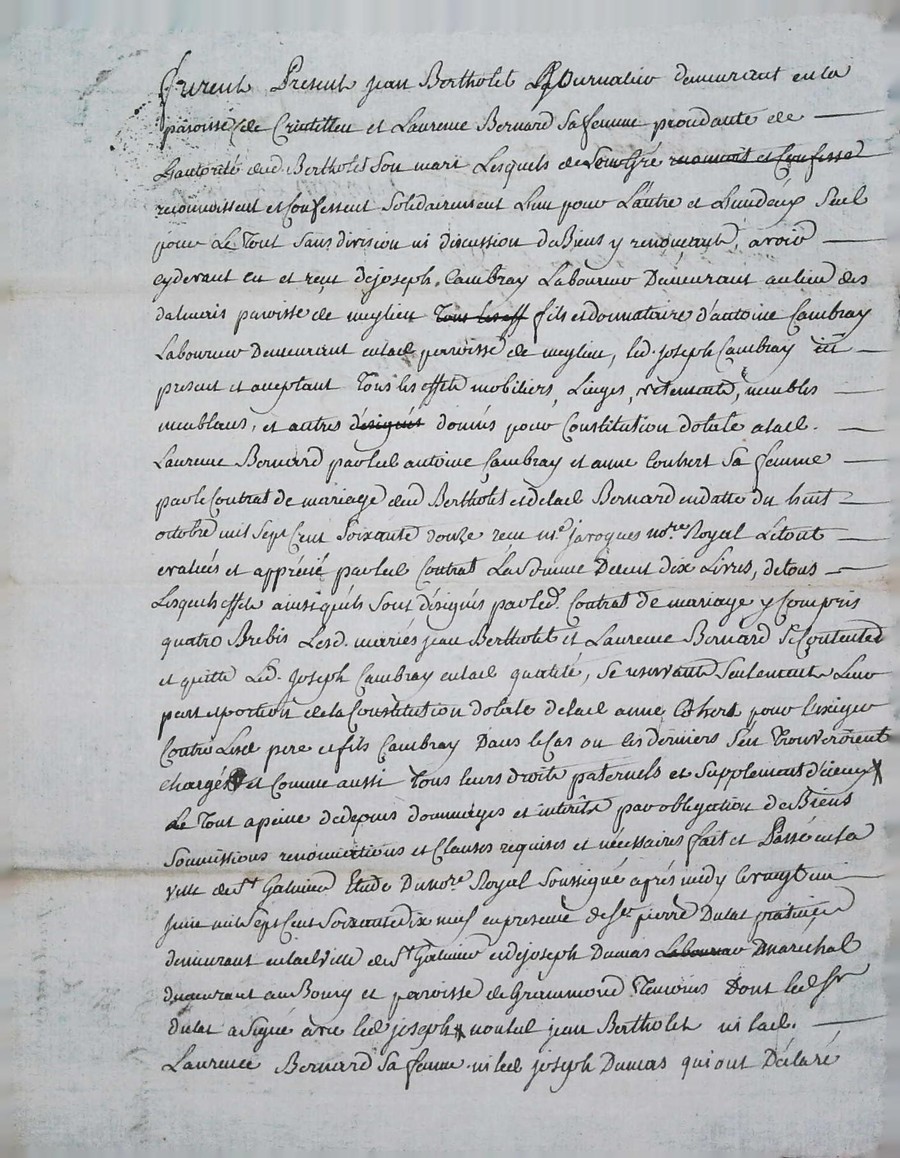 furent Present jean Bertholet Journalier demeurant en la
paroisse de Crintilleu et Laurence Bernard Sa femme procédante de
L'autorité dud. Bertholet Son mari Lesquels de Leur Gré reconnoit et Confesse
reconnoissent et Confessent Solidairement L'un pour L'autre et L'un d'eux Seul
pour Le Tout Sans division ni discussion de Biens y renonceant, avoir
cy devant eu et reçu de joseph Cambray Laboureur Demeurant au lieu des
paroisse de meylieu Tous les eff fils et donnataire d'antoine Cambray
Laboureur Demeurant en lad. paroisse de meylieu, led. joseph Cambray ici
present et acceptant Tous les effets mobiliers, Linges, vetements, meubles
meublans, et autres désignés donnés pour Constitution dotale a lad.
Laurence Bernard par led. antoine Cambray et anne Couhert Sa femme
par le Contrat de mariage dud Bertholet et de lad Bernard en datte du huit
octobre mil Sept Cent Soixante douze reçu me. jaroques nore. Royal Le tout
evalués et apprécié par led Contrat La Somme De cent dix Livres, de tous
Lesquels effets ainsi qu'ils Sont désignés par led. Contrat de mariage y Compris
quatre Brebis Lesd. mariés jean Bertholet et Laurence Bernard Se Contented
et quitte Led. joseph Cambray en lad qualité, Se reservants Seulement Leur
part et portion de la Constitution dotale de lad anne Cohert pour L'exiger
Contre Lesd pere et fils Cambray Dans le Cas ou les derniers S'en Trouveroient
Chargés et Comme aussi Tous Leurs droits paternels et Supplement d'iceux
Le Tout a peine de depens dommages et interêts par obligation de Biens
Soumissions renonciations et Clauses requises et nécessaires fait et Passé en la
ville de St Galmier Etude Du nore. Royal Soussigné après midy le vingt un
juin mil Sept Cent Soixante dix neuf en presence de Sr pierre Dulat praticien
demeurant en lad ville de St Galmier et de joseph Dumas Laboureur Marechal
demeurant au Bourg et paroisse de Grammond Temoins Dont led Sr
Dulat a Signé avec led joseph non led jean Bertholet ni lad.
Laurence Bernard Sa femme ni led joseph Dumas qui ont Déclaré